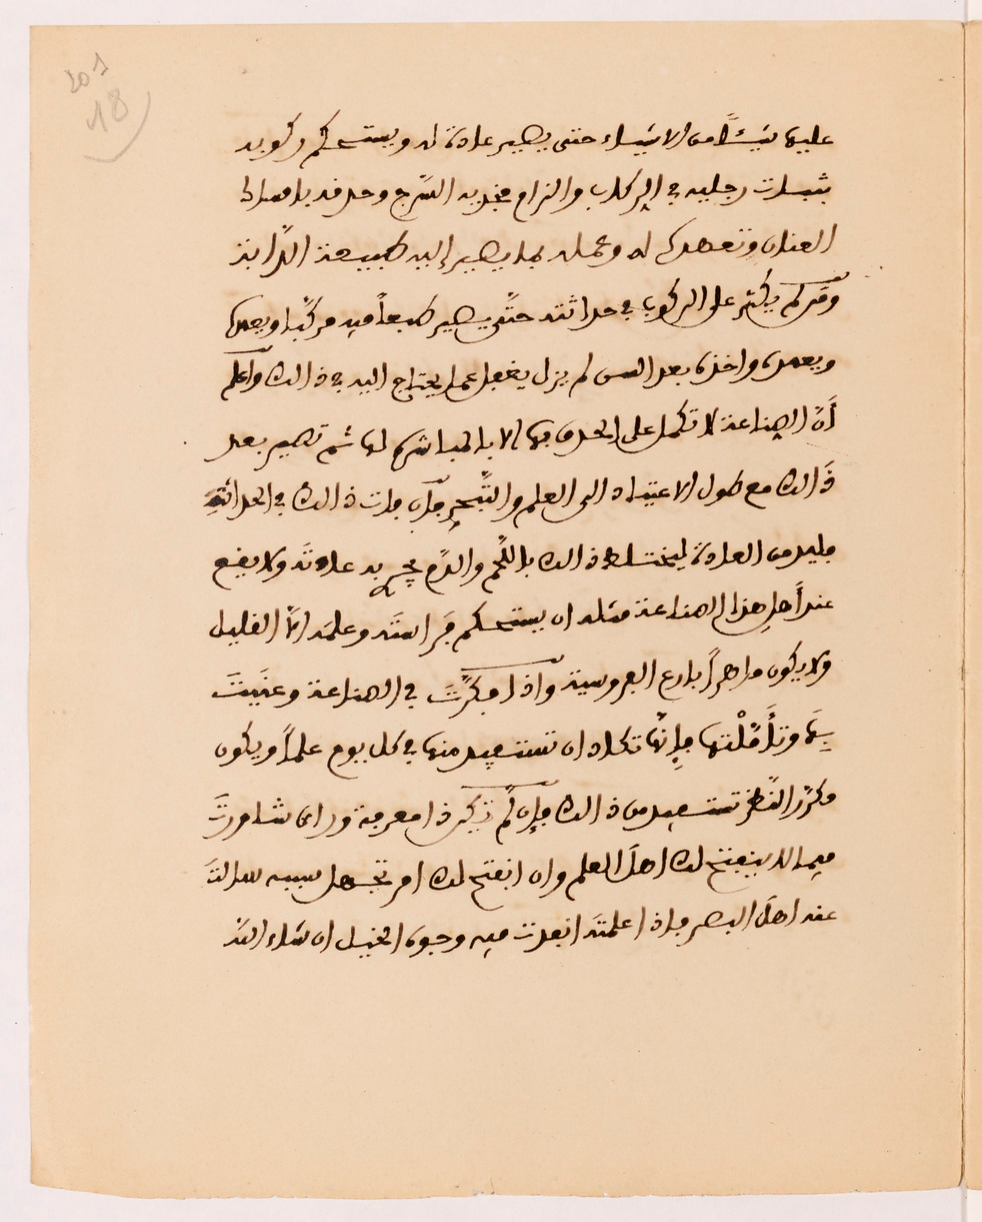 201
18
عليها شيئاً من الاشياء حتى يصير عادة له ويستحكم ركوبه
بثبات رجليه في الركاب والتزام فخذيه السّرج وحذقه بامساك
العنان وتعهدك له وعمله بما يصير إليه طبيعة الدّابة
ومَن لم يكثر على الركوب في حداثته حتّى يصير طبعاً فيه مركّبا
واخذه بعد السن لم يزل يغفل عما يحتاج اليه في ذالك واعلم
أَنّ الصناعة لا تكمل على الحذق بها الا بالمباشرة لها ثم تصير بعد
ذَالك مع طول الاعتياد الى العلم والتّبحر فإن فات ذالك في الحداثة
فليس من العادة ليختلط ذالك باللّحم والدّم به عادتَه ولا يقع
عند أَهل هذا الصناعة مثله ان يستحكم فراستَه وعلمَه الّا القليل
ولا يكون ماهراً بارع الفروسية واذا فكّرتَ في الصناعة وعنيتَ
بِهَا وتأَمّلْتها فإِنّها تكاد ان تستفيد منها في كل يوم علماً ويكون
مكرّر النّظر تستفيد من ذالك فإن لم تكن ذا معرفة وراى شاورتَ
فيما لا ينفتح لك اهلَ العلم وان انفتح لك امر تجهل سببه سالتَ
عنه اهلَ البصر فاذا علمتَه انفذت فيه وجوه الخيل ان شاء اللّه